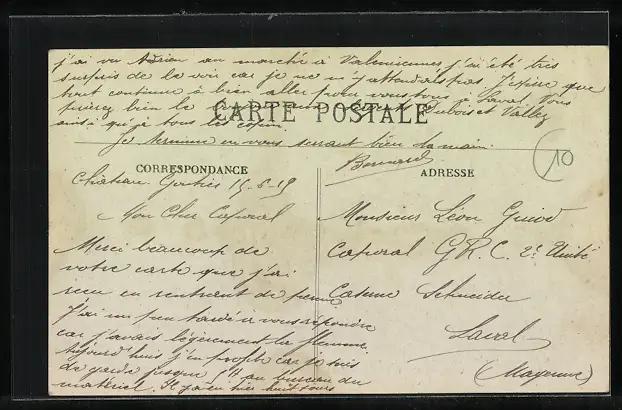 j'ai vu Adrien au marché à Valenciennes j'ai été très
surpris de le voir car je ne m'y attendais pas J'espère que
tout continue à bien aller pour vous tous à Laval. Vous
prierez bien le Dubois et Vallez
ainsi qu'à tous les copains.
CARTE POSTALE
Je termine en vous serrant bien la main.
Bernard
10
CORRESPONDANCE
Château Gontier 15-6-19
Mon Cher Caporal
Merci beaucoup de
votre carte que j'ai
reçu en rentrant de perme
J'ai un peu tardé à vous répondre
car j'avais légèrement la flemme.
Aujourd'hui j'en profite car je suis
de garde jusque 11 au bureau du
matériel. Il y a eu hier huit jours
ADRESSE
Monsieur Léon Guiod
Caporal G.R.C. 2e Unité
Caserne Schneider
Laval
(Mayenne)